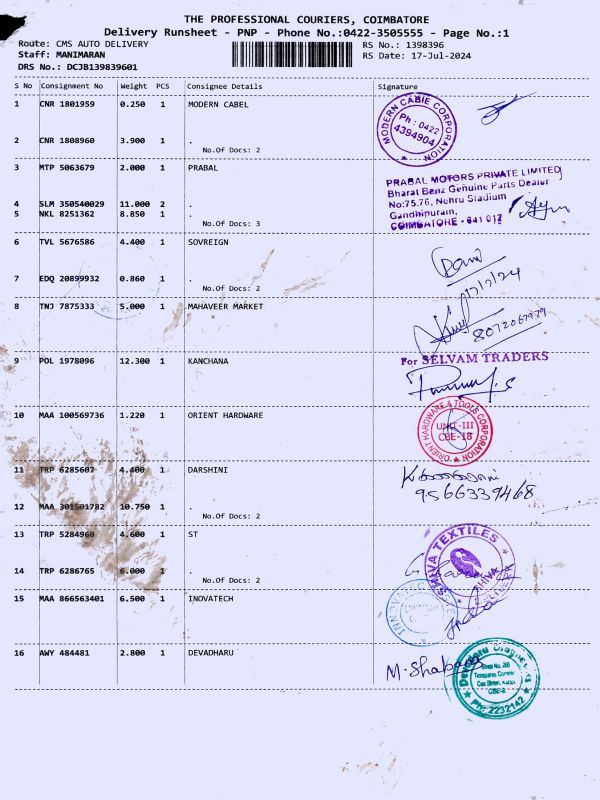 THE PROFESSIONAL COURIERS, COIMBATORE
Delivery Runsheet - PNP - Phone No.:0422-3505555 - Page No.:1
Route: CMS AUTO DELIVERY
RS No.: 1398396
Staff: MANIMARAN
RS Date: 17-Jul-2024
DRS No.: DCJB139839601
S No Consignment No Weight PCS Consignee Details Signature
1 CNR 1801959 0.250 1 MODERN CABEL
MODERN CABLE CORPORATION
Ph : 0422
4394904
2 CNR 1808960 3.900 1 .
No.Of Docs: 2
3 MTP 5063679 2.000 1 PRABAL
PRABAL MOTORS PRIVATE LIMITED
Bharat Benz Genuine Parts Dealer
No:75.76, Nehru Stadium
Gandhipuram,
COIMBATORE - 641 012
4 SLM 350540029 11.000 2 .
5 NKL 8251362 8.850 1 .
No.Of Docs: 3
6 TVL 5676586 4.400 1 SOVREIGN
7 EDQ 20899932 0.860 1 .
No.Of Docs: 2
17/7/24
8 TNJ 7875333 5.000 1 MAHAVEER MARKET
8072067979
9 POL 1978096 12.300 1 KANCHANA
For SELVAM TRADERS
10 MAA 100569736 1.220 1 ORIENT HARDWARE
ORIENT HARDWARE & TOOLS CORPORATION
UNIT-III
CBE-18
11 TRP 6285607 4.400 1 DARSHINI
9566339468
12 MAA 301501782 10.750 1 .
No.Of Docs: 2
13 TRP 5284960 4.600 1 ST
SHIVA TEXTILES
SHIVA
14 TRP 6286765 6.000 1 .
No.Of Docs: 2
15 MAA 866563401 6.500 1 INOVATECH
16 AWY 484481 2.800 1 DEVADHARU
M. Shabana
Shop No. 205
CBE-9.
Ph: 2232142